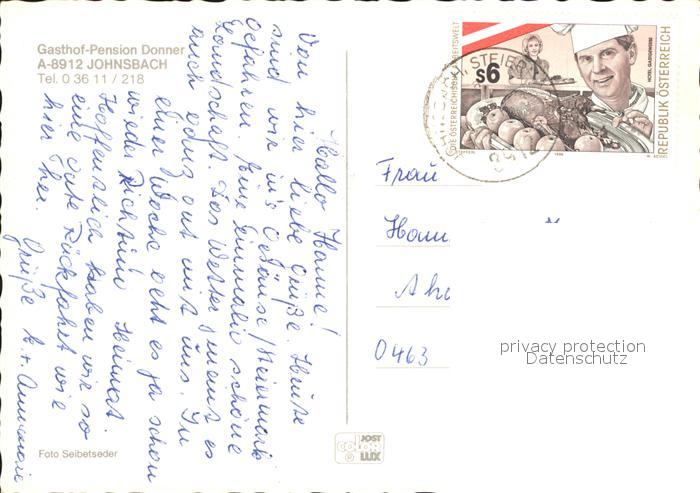 Gasthof-Pension Donner
A-8912 JOHNSBACH
Tel. 0 36 11 / 218
Hallo Hanne!
Von hier liebe Grüße. Heute
sind wir in's Gesäuse/Steiermark
gefahren. Eine einmalig schöne
Landschaft. Das Wetter meint es
auch ganz gut mit uns. In
einer Woche geht es ja schon
wieder Richtung Heimat.
Hoffentlich haben wir so
eine gute Rückfahrt wie
hier her.
Grüße
Annemarie
Foto Seibetseder
JOST
COLOR
LUX
DIE ÖSTERREICHISCHE ARBEITSWELT
S6
HOTEL GASTGEWERBE
REPUBLIK ÖSTERREICH
Frau
0463
privacy protection
Datenschutz